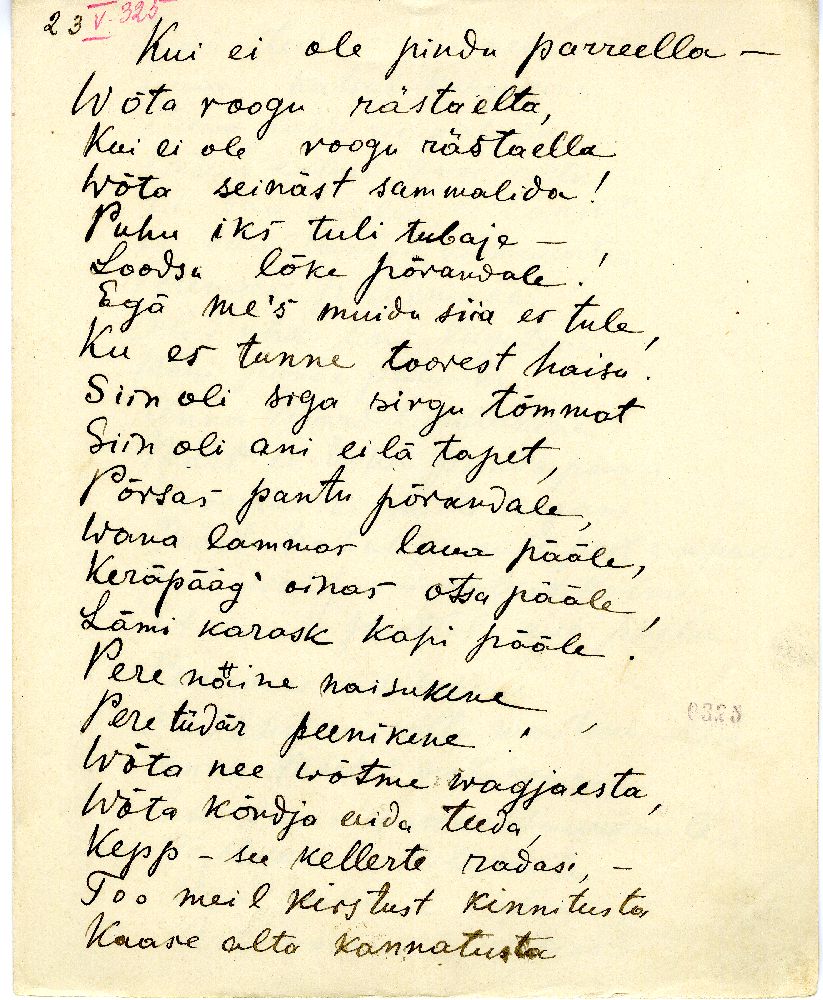 23 V. 325
Kui ei ole pindu parreella —
Wõta roogu rästaelta,
Kui ei ole roogu rästaella
Wõta seinäst sammalida!
Puhu iks tuli tubaje —
Loodsu lõke põrandale!
Egä me's muidu siia es tule,
Ku es tunne toorest haisu.
Siin oli siga sirgu tõmmat
Siin oli ani eilä tapet,
Põrsas pantu põrandale,
Wana lammas laua pääle,
Keräpääg' oinas otsa pääle,
Lämi karask kapi pääle.
Pere näine naisukene,
Pere tüdär peenikene!
Wõta nee wõtme wagjaesta,
Wõta kõndja enda teeda,
Kepp - see kellerte radasi, —
Too meil kirstust kinnitusta
Kaase alta kannatusta
0325